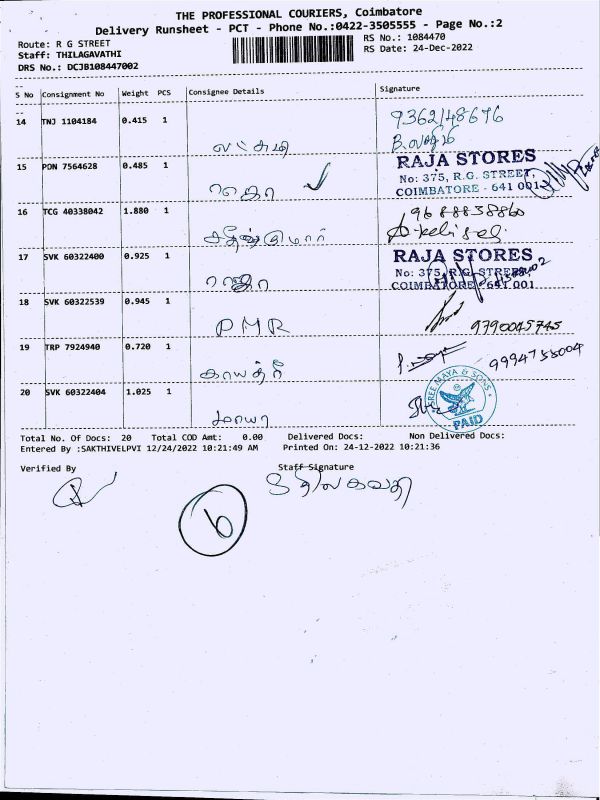 THE PROFESSIONAL COURIERS, Coimbatore
Delivery Runsheet - PCT - Phone No.:0422-3505555 - Page No.:2
Route: R G STREET
RS No.: 1084470
Staff: THILAGAVATHI
RS Date: 24-Dec-2022
DRS No.: DCJB108447002
S No Consignment No Weight PCS Consignee Details Signature
14 TNJ 1104184 0.415 1
லட்சுமி
15 PON 7564628 0.485 1
ராஜா
RAJA STORES
No: 375, R.G. STREET,
COIMBATORE - 641 001
16 TCG 40338042 1.880 1
சதீஷ்குமார்
17 SVK 60322400 0.925 1
ராஜா
RAJA STORES
No: 375, R.G. STREET,
COIMBATORE - 641 001
18 SVK 60322539 0.945 1
PMR
9790045745
19 TRP 7924940 0.720 1
காயத்ரி
20 SVK 60322404 1.025 1
மாயா
SREE MAYA & SONS
PAID
Total No. Of Docs: 20 Total COD Amt: 0.00 Delivered Docs: Non Delivered Docs:
Entered By :SAKTHIVELPVI 12/24/2022 10:21:49 AM Printed On: 24-12-2022 10:21:36
Verified By Staff Signature
திலகவதி
6